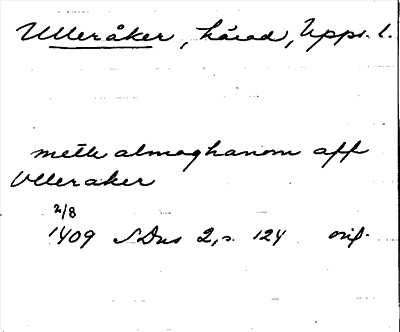 Ulleråker, härad, Upps. l.
mett almoghanom aff
Vlleraker
2/8
1409 SDns 2, s. 124 orig.